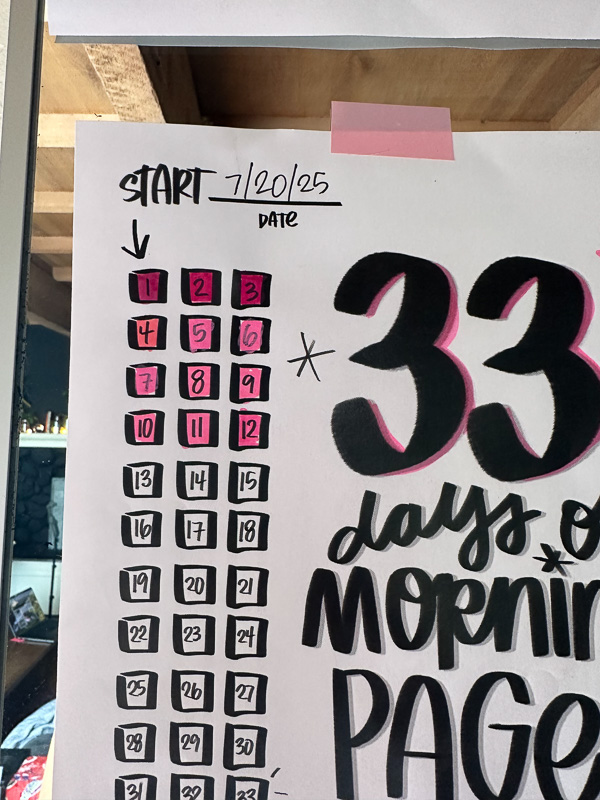 START 7/20/25
DATE
1 2 3
4 5 6
7 8 9
10 11 12
13 14 15
16 17 18
19 20 21
22 23 24
25 26 27
28 29 30
31 32 33
* 33
days
MORNIN
PAGE